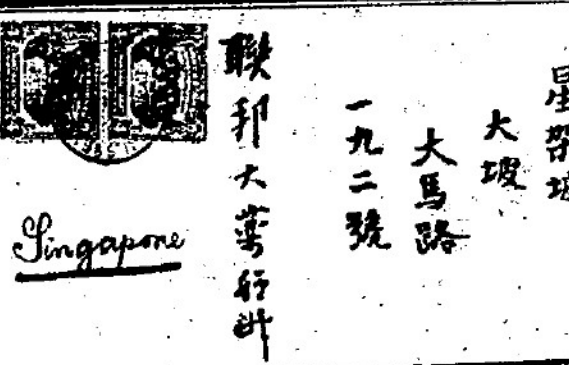 星架坡
大坡
大馬路
一九二號
聯邦大藥行
Singapore